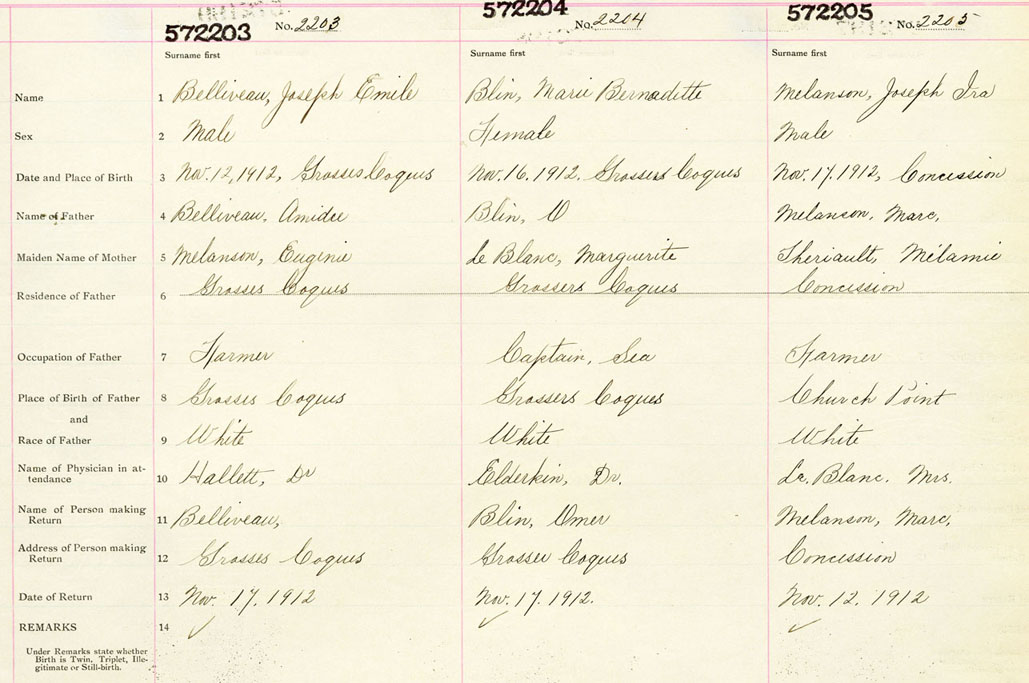 572203 No. 2203 572204 No. 2204 572205 No. 2205
Surname first Surname first Surname first
Name 1 Belliveau, Joseph Emile Blin, Marie Bernadette Melanson, Joseph Ira
Sex 2 Male Female Male
Date and Place of Birth 3 Nov. 12, 1912, Grosses Coques Nov. 16. 1912. Grossers Coques Nov. 17. 1912, Concession
Name of Father 4 Belliveau, Amidee Blin, O Melanson, Marc,
Maiden Name of Mother 5 Melanson, Eugenie Le Blanc, Marguerite Theriault, Mélamie
Residence of Father 6 Grosses Coques Grossers Coques Concession
Occupation of Father 7 Farmer Captain, Sea Farmer
Place of Birth of Father 8 Grosses Coques Grossers Coques Church Point
and
Race of Father 9 White White White
Name of Physician in at-
tendance 10 Hallett, Dr Elderkin, Dr. Le. Blanc. Mrs.
Name of Person making
Return 11 Belliveau, Blin, Omer Melanson, Marc,
Address of Person making
Return 12 Grosses Coques Grosser Coques Concession
Date of Return 13 Nov. 17. 1912 Nov. 17. 1912. Nov. 12. 1912
REMARKS 14 ✓ ✓ ✓
Under Remarks state whether
Birth is Twin, Triplet, Ille-
gitimate or Still-birth.